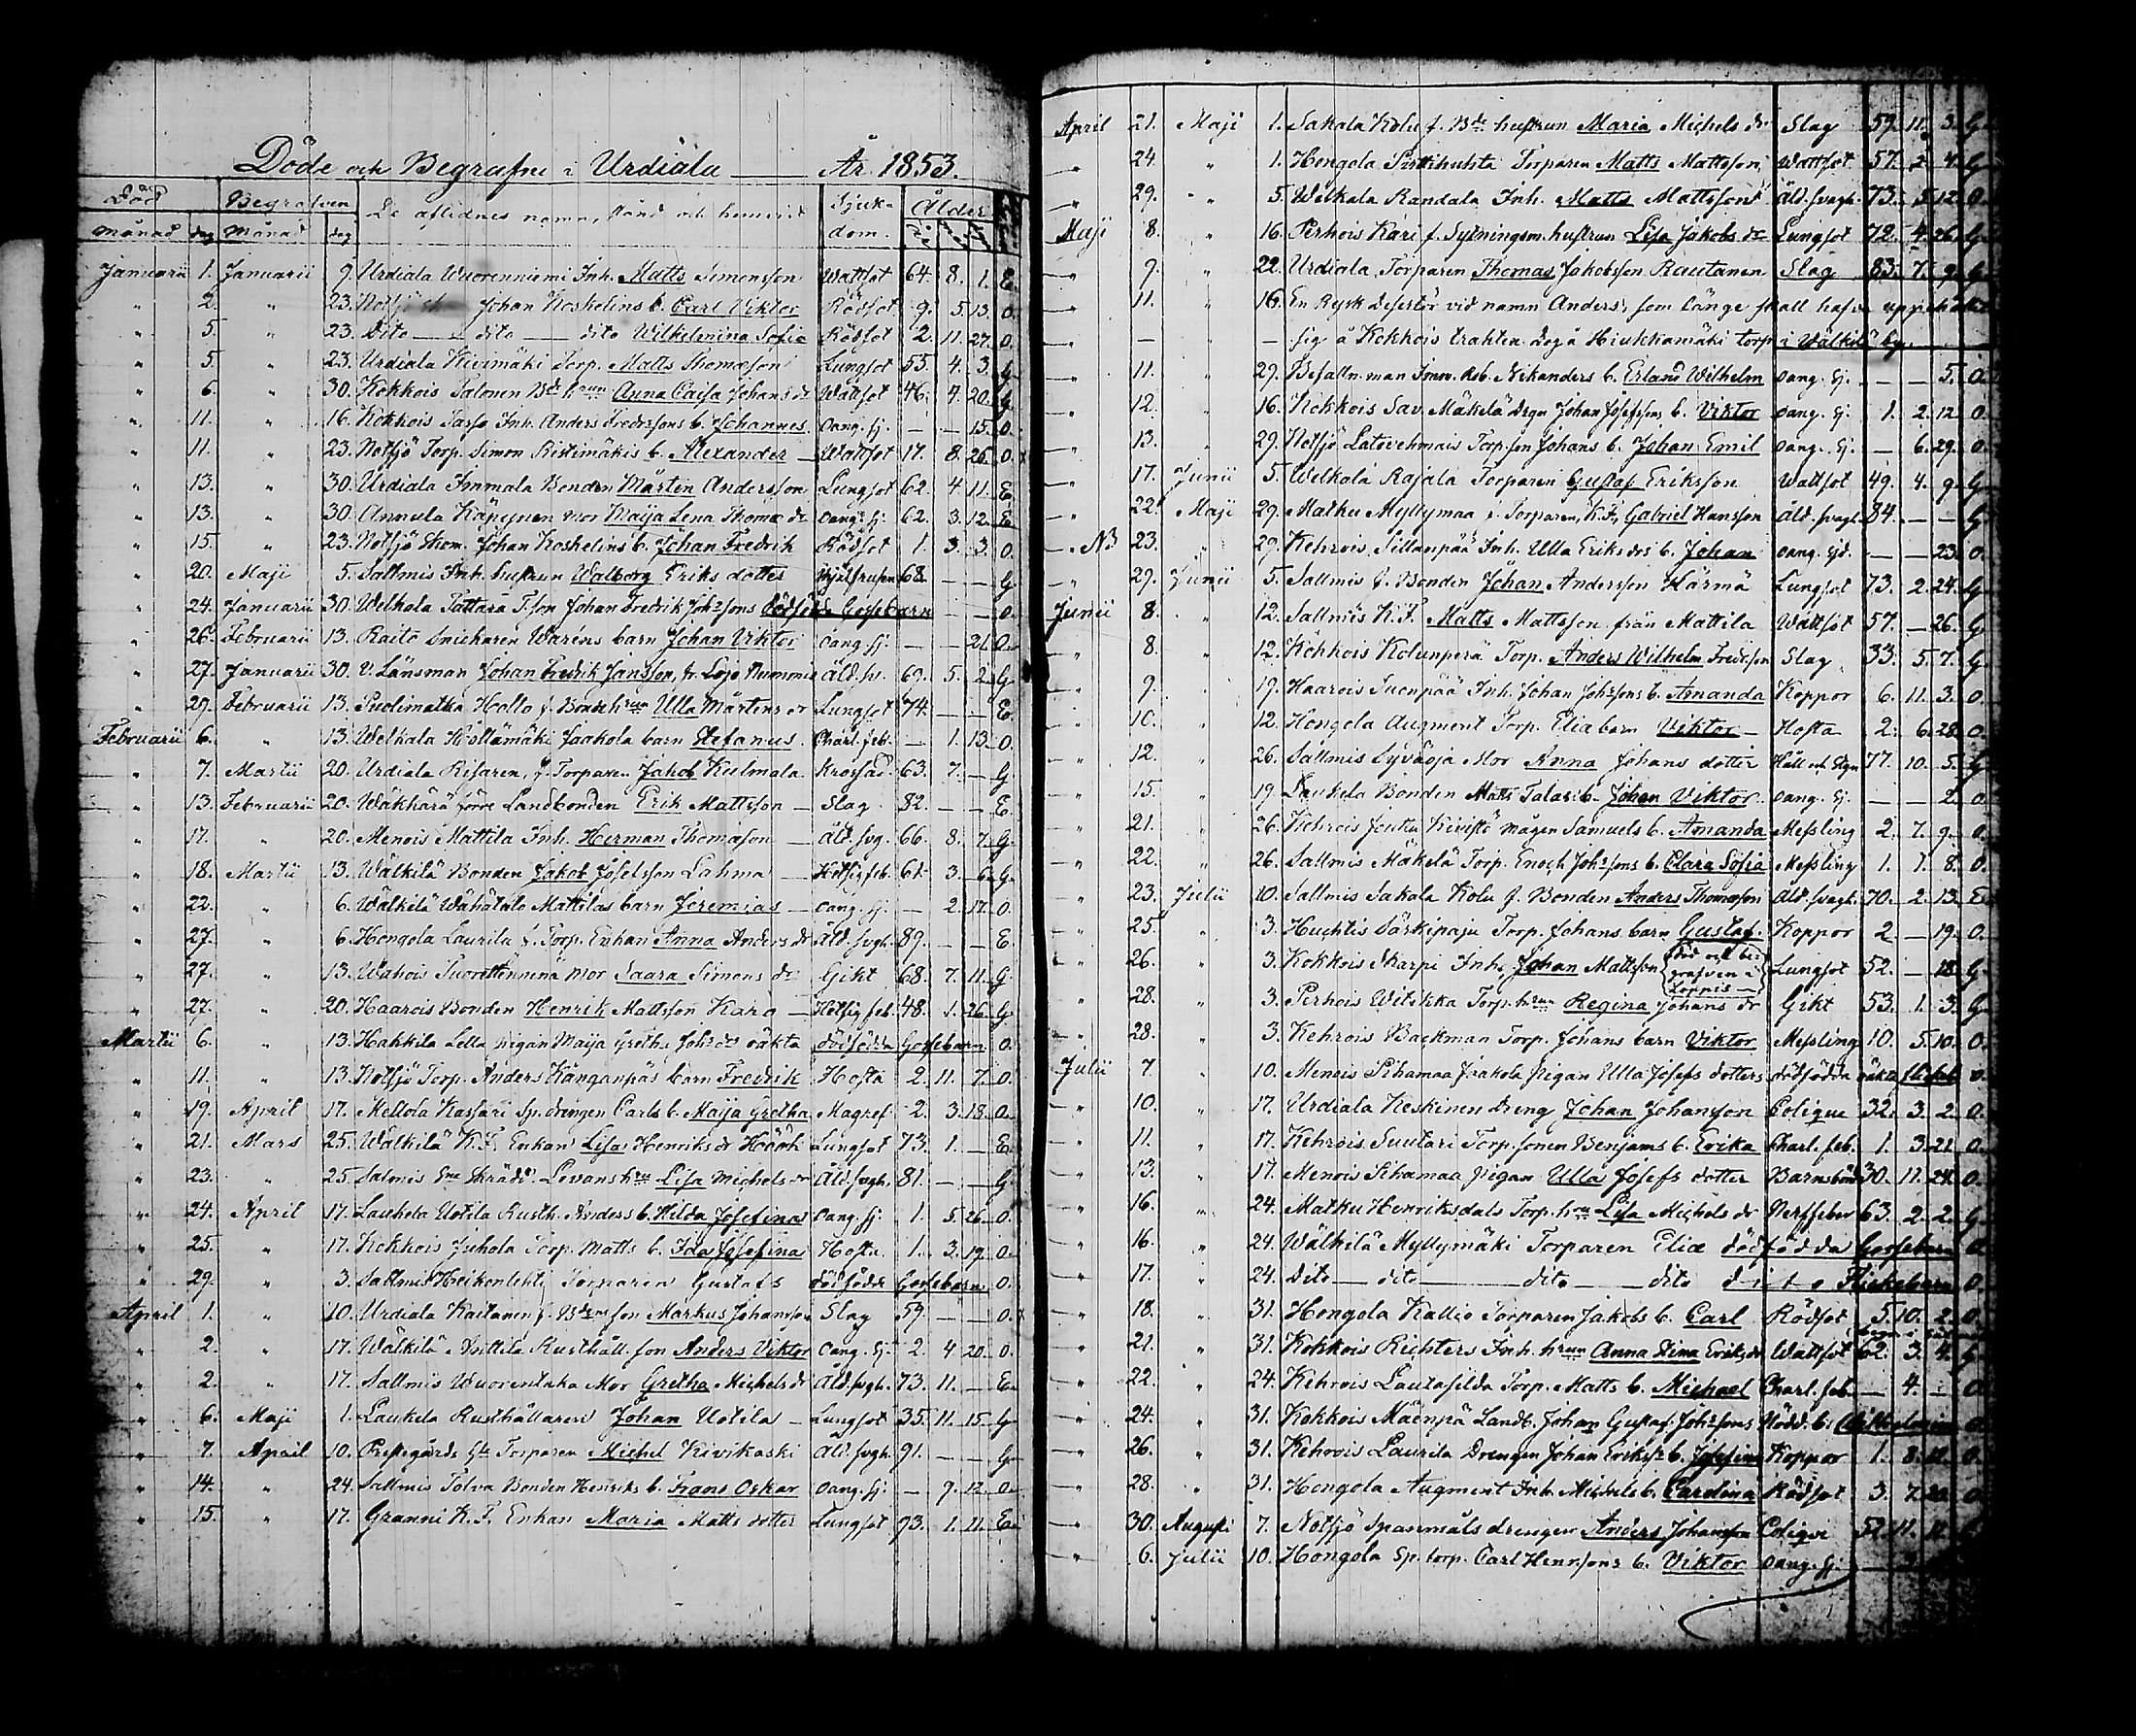 Döde och Begrafne i Urdiala — År 1853.
Död Begrafven De aflidnes namn, stånd och hemvist Sjuk- Ålder
Månad dag Månad dag dom.
Januarii 1. Januarii 9. Urdiala Wuorenniemi Inh. Matts Simonsson Wattsot 64. 8. 1. E.
" 2. " 23. Notsjö Johan Koskelins b. Carl Viktor Rödsot 9. 5. 13. O.
" 5. " 23. Dito — dito — dito Wilhelmina Sofia Rödsot 2. 11. 27. O.
" 5. " 23. Urdiala Kivimäki Torp. Matts Thomasson Lungsot 55. 4. 3. G.
" 6. " 30. Kokkois Salonen Bde hrun Anna Caisa Johans dr Wattsot 46. 4. 20. G.
" 11. " 16. Kokkois Sasso Inh. Anders Fredrssons b. Johannes oang. sj. — — 15. O.
" 11. " 23. Notsjö Torp. Simon Ristimäkis b. Alexander — Wattsot 17. 8. 26. O.
" 13. " 30. Urdiala Immala Bonden Mårten Andersson Lungsot 62. 4. 11. E.
" 13. " 30. Annula Käpynen mor Maija Lena Thomæ dr oang. sj. 62. 3. 12. E.
" 15. " 23. Notsjö Skom. Johan Koskelins b. Johan Fredrik Rödsot 1. 3. 3. O.
" 20. Maji 5. Sallmis Inh. hustrun Walborg Eriks dotter ihjälfrusen 68. — — G.
" 24. Januarii 30. Welkala Tattara T.son Johan Fredrik Johssons dödfödde Gossebarn — — O.
" 26. Februarii 13. Raito Snickaren Waréns barn Johan Viktor oang. sj. — — 21. O.
" 27. Januarii 30. V. Länsman Johan Fredrik Jansson, fr. Lojo Nummis Åld. sv. 69. 5. 2. G.
" 29. Februarii 13. Puolimatka Hollo f. Bonde hrun Ulla Mårtens dr Lungsot 74. — — E.
Februarii 6. " 13. Welkala Kollämäki Jaakola barn Stefanus Charl. feb. — 1. 13. O.
" 7. Martii 20. Urdiala Risaren, f. Torparen Jakob Kulmala Krossad. 63. 7. — G.
" 13. Februarii 20. Wäkhärä förre Landbonden Erik Mattsson — Slag 82. — — E.
" 17. " 20. Menois Mattila Inh. Herman Thomasson — Åld. svg. 66. 8. 7. G.
" 18. Martii 13. Wälkilä Bonden Jakob Josefsson Lahma — Hetsig feb. 61. 3. 6. G.
" 22. " 6. Wälkilä Wähätalo Mattilas barn Jeremias — oang. sj. — 2. 17. O.
" 27. " 6. Hongola Laurila f. Torp. Enkan Anna Anders dr Åld. svgh. 89. — — E.
" 27. " 13. Wahois mor Saara Simons dr Gikt 68. 7. 11. G.
" 27. " 20. Haarois Bonden Henrik Mattsson Karo — Hetsig feb. 48. 1. 26. G.
Martii 6. " 13. Hakkila Lella pigan Maija Greths Johs drs oäkta dödfödda Gossebarn O.
" 11. " 13. Notsjö Torp. Anders Känganpäs barn Fredrik Hosta 2. 11. 7. O.
" 19. April 17. Mellola Kassari Sp. drengen Carls b. Maija Gretha Magref 2. 3. 18. O.
" 21. Mars 25. Wälkilä K.F. Enkan Lisa Henriks dr Höökh Lungsot 73. 1. — E.
" 23. " 25. Salmis Skrädd. Levans hru Lisa Michels dr Åld. svgh. 81. — — G.
" 24. April 17. Laukela Uotila Rusth. Anders b. Hilda Josefina oang. sj. 1. 5. 26. O.
" 25. " 17. Kokkois Juhola Torp. Matts b. Ida Josefina Hosta 1. 3. 19. O.
" 29. " 3. Sallmis Heikonlehti Torparen Gustafs dödfödde Gossebarn O.
April 1. " 10. Urdiala Kaitanen f. son Markus Johansson Slag 59. — — O.
" 2. " 17. Wälkilä Anttila Rusthåll. son Anders Viktor oang. sj. 2. 4. 20. O.
" 2. " 17. Sallmis Wuorentaka Mor Gretha Michels dr Åld. svgh. 73. 11. — E.
" 6. Maji 1. Laukela Rusthållaren Johan Uotila — Lungsot 35. 11. 15. G.
" 7. April 10. Prestgårds Torparen Michel Kivikoski Åld. svgh. 91. — — G.
" 14. " 24. Sallmis Tolva Bonden Henriks b. Frans Oskar oang. sj. — 9. 12. O.
" 15. " 17. Granni K.F. Enkan Maria Matts dotter Lungsot 73. 1. 11. E.
April 21. Maji 1. Sakala Kolu f. Bde hustrun Maria Michels dr Slag 59. 11. 3. G.
" 24. " 1. Hongola Torparen Matts Mattsson Wattsot 57. 2. 4. G.
" 29. " 5. Wälkala Randala Inh. Matts Mattsson Åld. svagh. 73. 5. 12. O.
Maji 8. " 16. Perhois Kari f. Sytningsm. hustrun Lisa Jakobs dr Lungsot 72. 4. 26. G.
" 9. " 22. Urdiala Torparen Thomas Jakobsson Rautanen Slag 83. 7. 9. G.
" 11. " 16. En Rysk Desertör vid namn Anders, som länge skall hafva uppehållit
" — — sig å Kokkois trakten dog å Hiukkamäki torp i Wälkilä by.
" 11. " 29. Befalln. man Nikanders b. Erland Wilhelm oang. sj. — — 5. O.
" 12. " 16. Kokkois Sav. Mäkelä dregn Johan Josefssons b. Viktor oang. sj. 1. 2. 12. O.
" 13. " 29. Notsjö Latovehmais Torp. son Johans b. Johan Emil oang. sj. — 6. 29. O.
" 17. Junii 5. Welkala Rajala Torparen Gustaf Eriksson Wattsot 49. 4. 9. G.
" 22. Maji 29. Matku Myllymaa f. Torparen, K.F., Gabriel Hansson Åld. svagh. 84. — — G.
" NB 23. " 29. Kehrois Sillanpää Inh. Ulla Eriks drs b. Johan oang. sjd. — — 23. O.
" 29. Junii 5. Sallmis f. Bonden Johan Andersson Härmä Lungsot 73. 2. 24. G.
Junii 8. " 12. Sallmis K.F. Matts Mattsson från Mattila Wattsot 57. — 26. G.
" 8. " 12. Kokkois Kolunperä Torp. Anders Wilhelm Fredrsson Slag 33. 5. 7. G.
" 9. " 19. Haarois Suonpää Inh. Johan Johssons b. Amanda Koppor 6. 11. 3. O.
" 10. " 12. Hongola Augment Torp. Elia barn Viktor — Hosta 2. 6. 28. O.
" 12. " 26. Sallmis Syväoja Mor Anna Johans dotter Håll och Stgn 77. 10. 5. G.
" 15. " 19. Laukela Bonden Matts Talari b. Johan Viktor oang. sj. — — 2. O.
" 21. " 26. Kehrois Jontu Kivistö mågen Samuels b. Amanda Messling 2. 7. 9. O.
" 22. " 26. Sallmis Mäkelä Torp. Enoch Johssons b. Clara Sofia Messling 1. 1. 8. O.
" 23. Julii 10. Sallmis Sakala Kolu f. Bonden Anders Thomasson Åld. svagh. 70. 2. 13. E.
" 25. " 3. Huhtis Särkipaju Torp. Johans barn Gustaf. Koppor 2. — 19. O.
" 26. " 3. Kokkois Skarpi Inh. Johan Mattsson {död och begrafven i Loppis} Lungsot 52. — 18. G.
" 28. " 3. Perhois Witikka Torp. hrun Regina Johans dr Gikt 53. 1. 3. G.
" 28. " 3. Kehrois Backman Torp. Johans barn Viktor Messling 10. 5. 10. O.
Julii 7. " 10. Menois Pihamaa Jaakola Pigan Ulla Josefs dotters dödfödda oäkta O.
" 10. " 17. Urdiala Keskinen Dreng Johan Johansson Colique 32. 3. 2. O.
" 11. " 17. Kehrois Suutari Torp. sonen Benjams b. Erika Charl. feb. 1. 3. 21. O.
" 13. " 17. Menois Pihamaa pigan Ulla Josefs dotter Barnsbörd 30. 11. 24. O.
" 16. " 24. Matku Henriksdals Torp. hru Lisa Michels dr Nerffeber 63. 2. 2. G.
" 16. " 24. Wälkilä Myllymäki Torparen Eliæ dödfödda Gossebarn O.
" 17. " 24. Dito — dito — dito — dito dito Flickebarn O.
" 18. " 31. Hongola Kallio Torparen Jakobs b. Carl Rödsot 5. 10. 2. O.
" 21. " 31. Kokkois Richters Inh. hrun Anna Stina Eriks dr Wattsot 62. 3. 4. G.
" 22. " 24. Kehrois Lautasilda Torp. Matts b. Michael Charl. feb. — 4. — O.
" 24. " 31. Kokkois Mäenpä Landb. Johan Gustaf Johssons Nödd. b. Wilhelmina O.
" 26. " 31. Kehrois Laurila Drengen Johan Erikss. b. Josefina Koppor 1. 8. O.
" 28. " 31. Hongola Augment Inh. Michels b. Carolina Rödsot 3. 7. 20. O.
" 30. Augusti 7. Notsjö Spanmåls drengen Anders Johansson Coliqve 52. 11. 11. G.
" 6. Julii 10. Hongola Sp. torp. Carl Henrssons b. Viktor oang. sj. — 3.